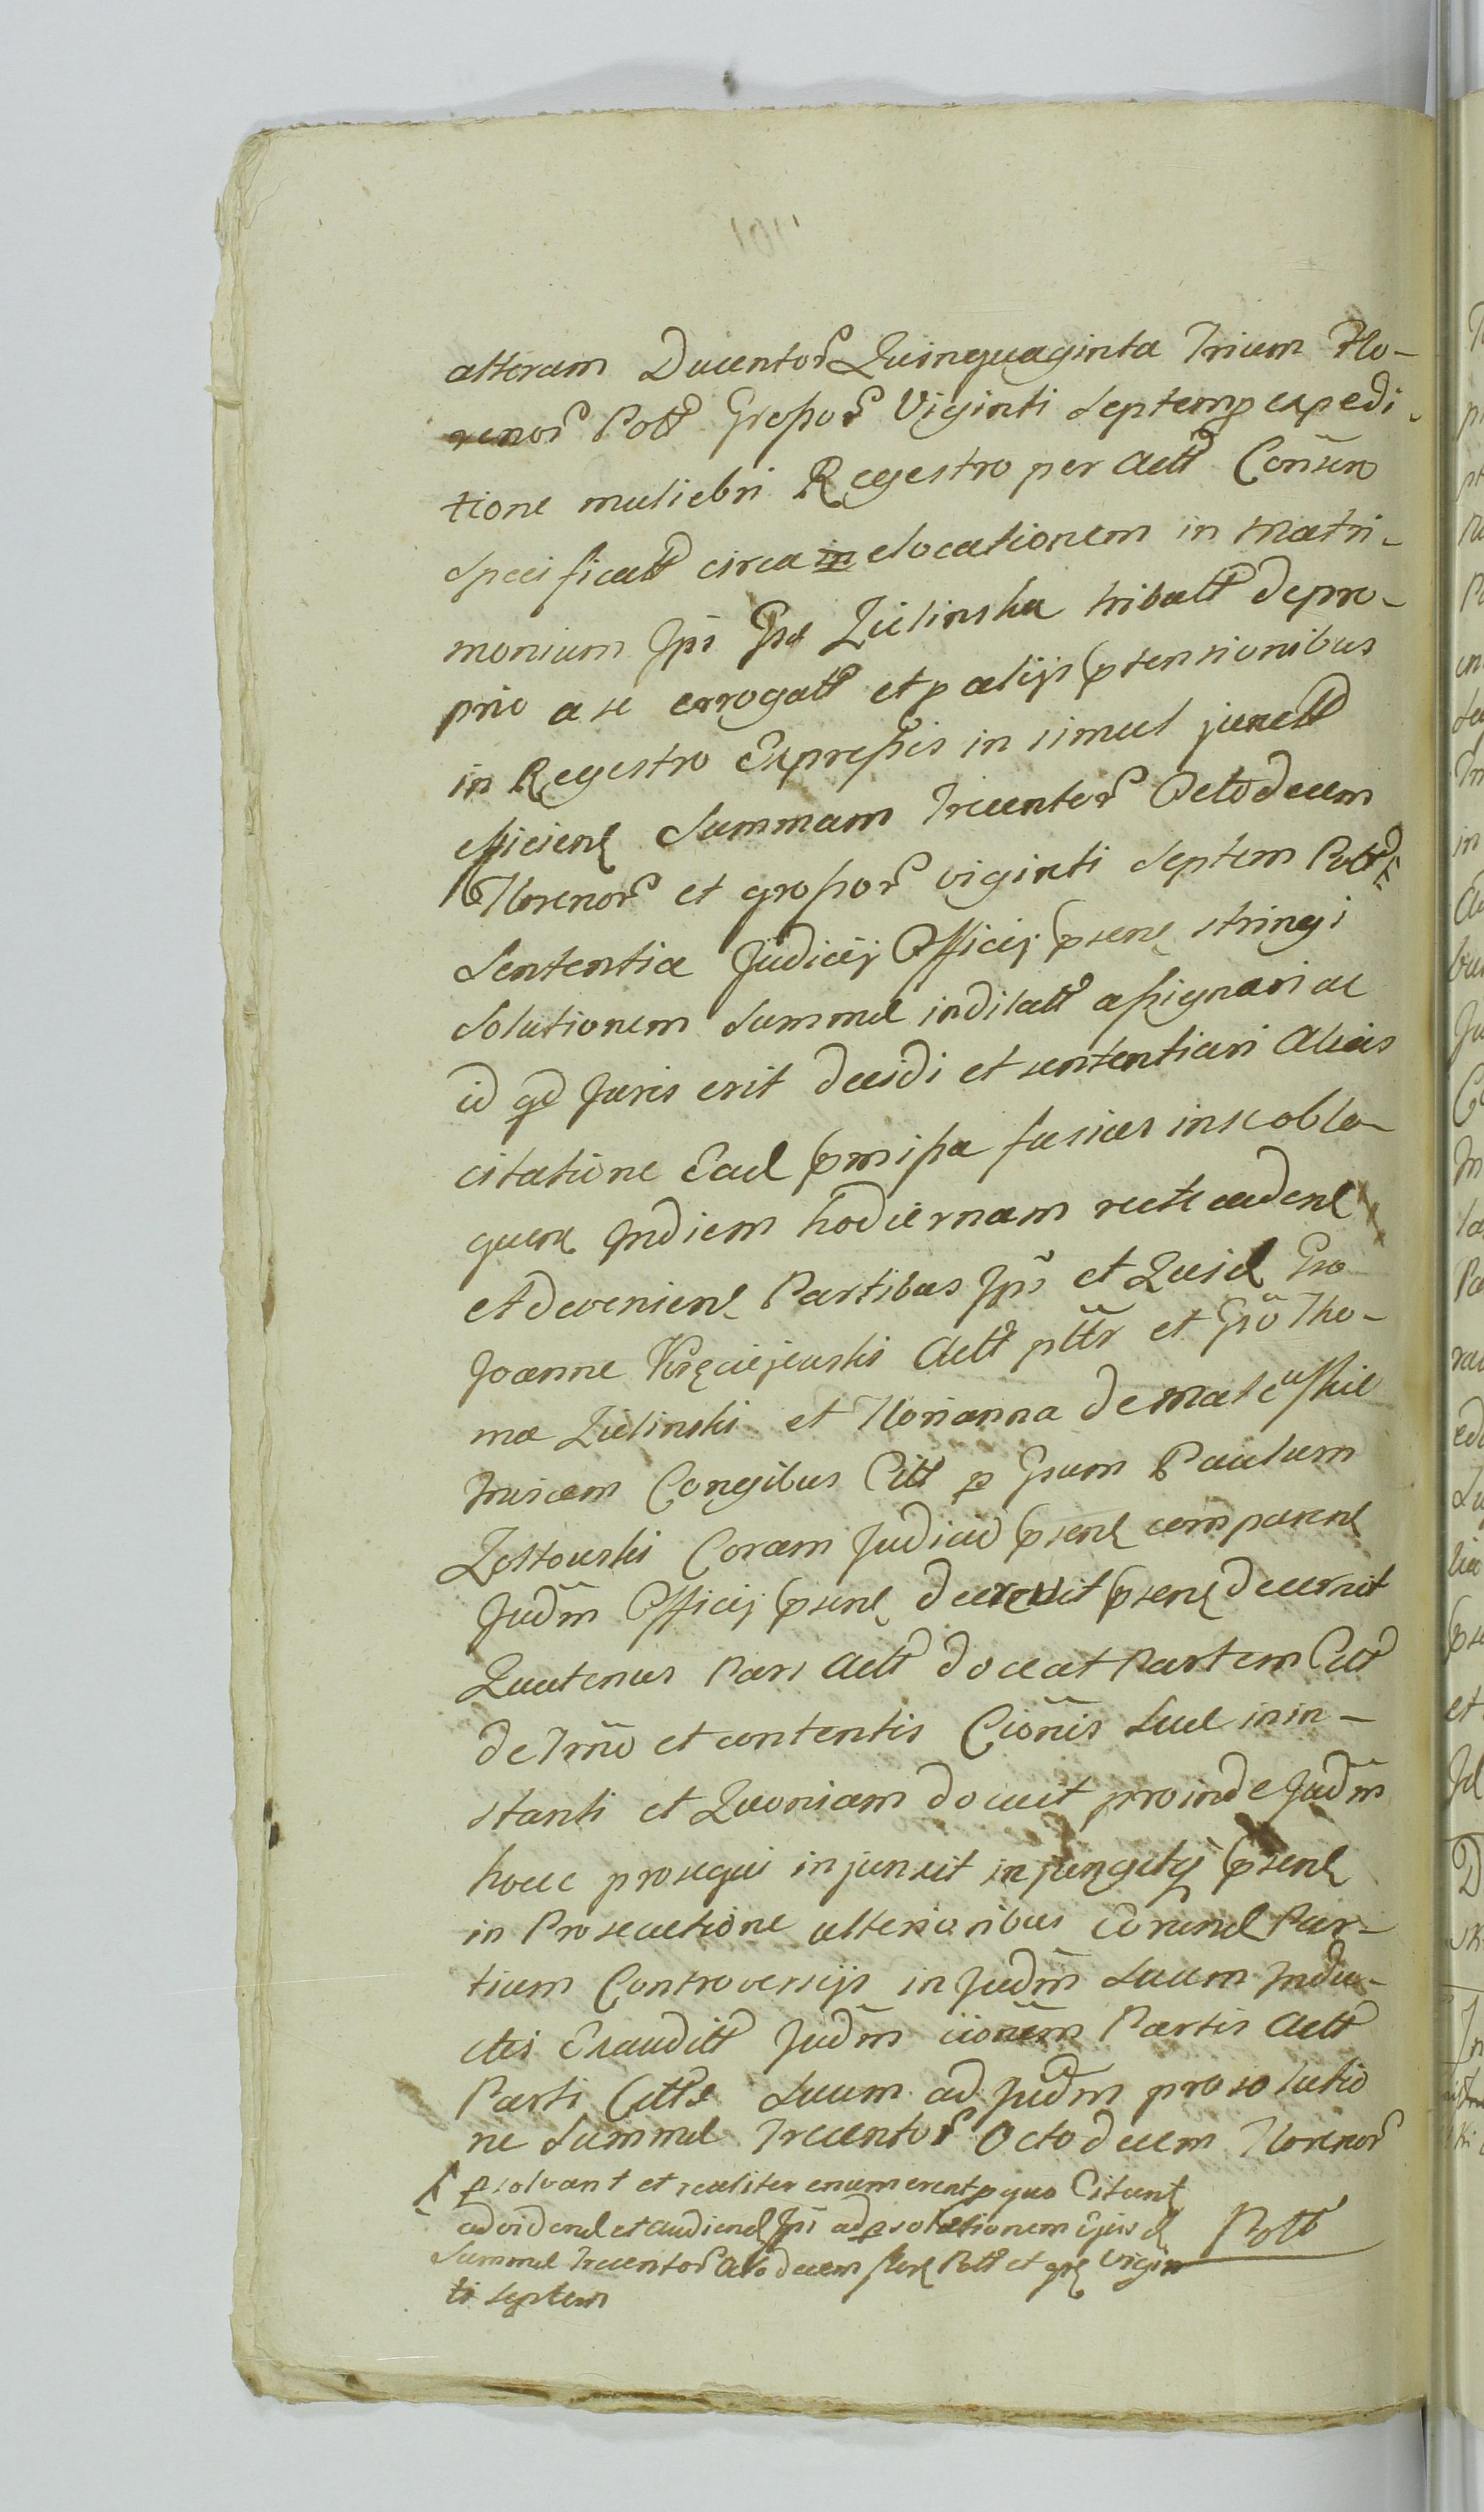 alteram Ducentor Quinquaginta Trium Flo-
renor Poll Grossor Viginti Septem p expedi-
tione muliebri Regestro per Actt Conscro
Specificatt circa in elocationem in Matri-
monium Ipi Gsæ Zielinska tributt depro-
prio a se errogatt et p alijs prtensionibus
in Regestro Expressis in simul junctt
efficien Summam Trecentor Octodecem
Florenor et grossor viginti Septem Poll
Sententia Judicij Officij prsen stringi
Solutionem Summæ indilatt assignari ac
id qd Juris erit decidi et sententiari Alias
citatione Ead prmissa fusius in se oblo-
quen Indiem hodiernam recte caden
et devenien Partibus Ipi et Quid Gso
Joanne Kręciejewski Actt pttr et Gso Tho-
ma Zielinski et Florianna de Maleuskie
Invicem Congibus Citt p Gsum Paulum
Zołtowski Coram Judicio prsen comparen
Judm Officij prsen decrevit prsen decernit
Quatenus Pars Actt doceat Partem Citt
de Trno et contentis Cionis Suæ in in-
stanti et Quoniam docuit proinde Judm
hocce prosequi injunxit injungitq prsen
in Prosecutione ulterioribus Eorund Par-
tium Controversijs in Judm Suum Indu-
ctis Exauditt Judm cionem Partis Actt
Parti Cittæ Suum ad Judm pro solutio
ne Summæ Trecentor Octodecem Florenor
psolvant et realiter enumerent p quo Citant
ad viden et audien Ipi ad psolutionem Ejusd
Summæ Trecentor Octodecem flor Poll et gr Vigin
ti Septem
Poll